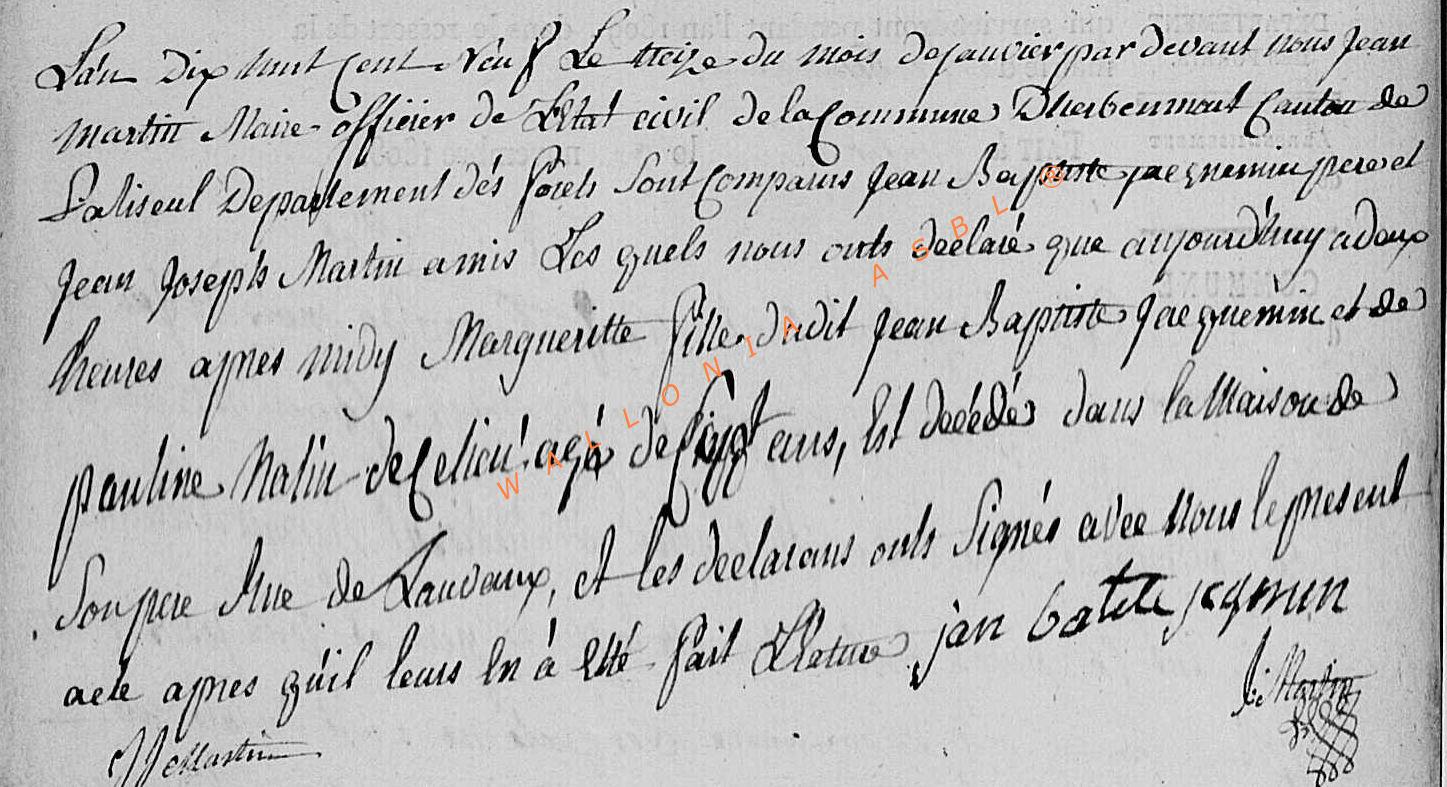 L'an Dix huit Cent Neuf Le treize du mois de janvier par devant nous Jean
Martin Maire officier de L'Etat civil de la Commune D'herbeumont Canton de
Paliseul Departement dés forets Sont Comparus Jean Baptiste jacquemin pere et
Jean Joseph Martin amis Les quels nous onts declaré que aujourd'huy a deux
heures apres midy Margueritte fille dudit Jean Baptiste Jacquemin et de
pauline de Ce lieu agé de Sept ans, Est décédé dans la Maison de
Son pere Rue de Lauvaux, et les declarans onts Signés avec Nous le present
acte apres qu'il leurs En à Etté fait Lecture jan batite jcqmin
Martin
JJ Martin
WALLONIA ASBL ®